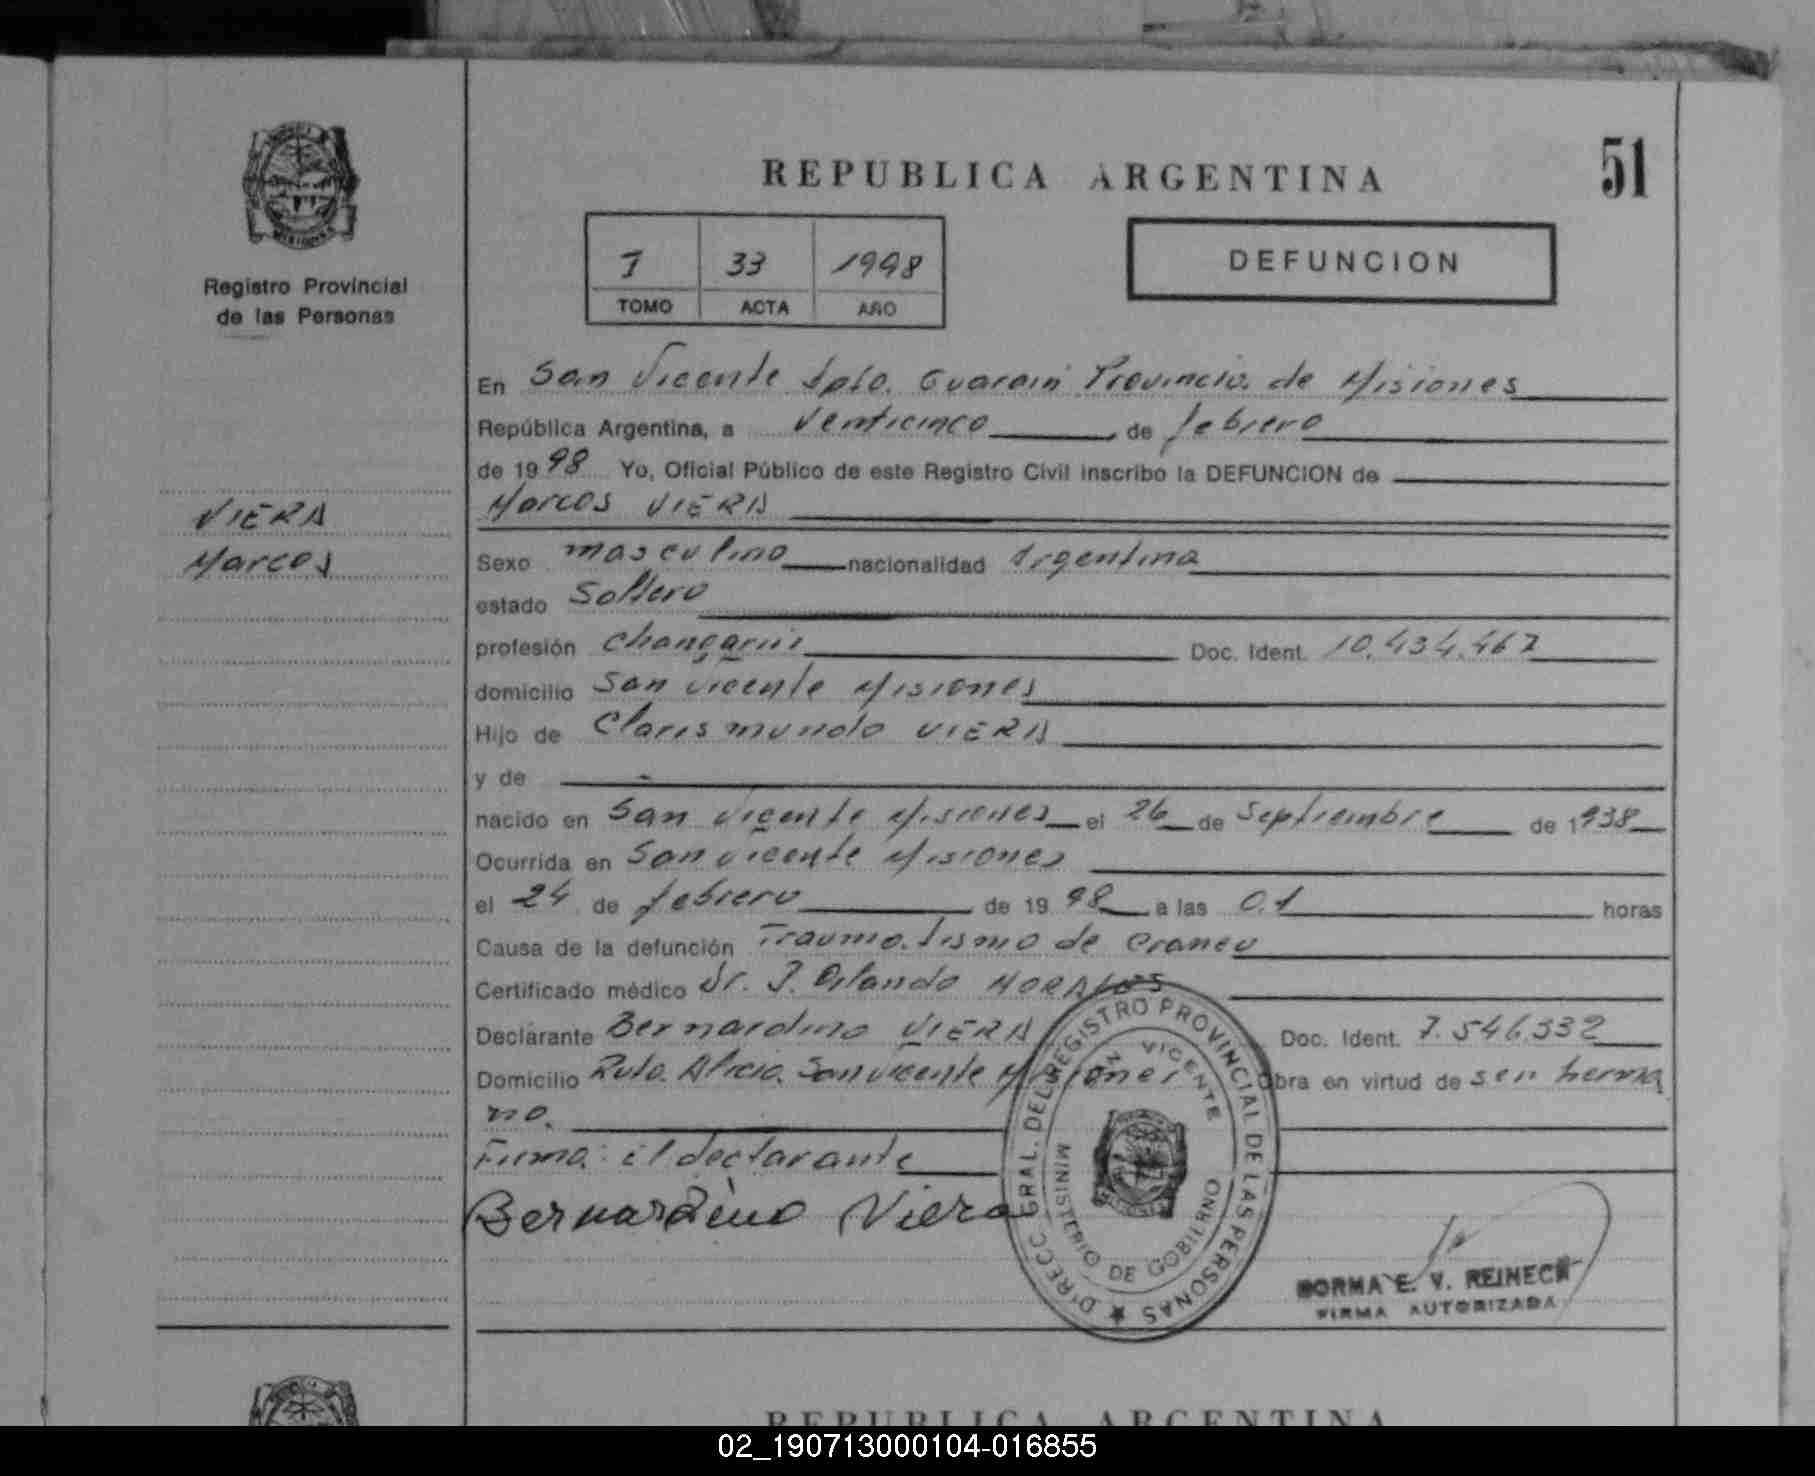 REPUBLICA ARGENTINA
51
Registro Provincial
de las Personas
VIERA
Marcos
33 1998
TOMO ACTA AÑO
DEFUNCION
En San Vicente Dpto. Guarani Provincia de Misiones
República Argentina, a Venticinco de febrero
de 1998 Yo, Oficial Público de este Registro Civil inscribo la DEFUNCION de
Marcos VIERA
Sexo masculino nacionalidad Argentina
estado Soltero
profesión Changarin Doc. Ident. 10.434.467
domicilio San Vicente Misiones
Hijo de Clarismundo VIERA
y de
nacido en San Vicente Misiones el 26 de Septiembre de 1938
Ocurrida en San Vicente Misiones
el 24 de febrero de 1998 a las 01 horas
Causa de la defunción Traumatismo de craneo
Certificado médico Dr. J. Orlando MORALES
Declarante Bernardino VIERA Doc. Ident. 7.546.332
Domicilio Ruta Alicia San Vicente Misiones Obra en virtud de ser herma
no.
Firma: el declarante
Bernardino Viera
DIRECC GRAL. DEL REGISTRO PROVINCIAL DE LAS PERSONAS
SAN VICENTE
MINISTERIO DE GOBIERNO
NORMA E. V. REINECK
FIRMA AUTORIZADA
REPUBLICA ARGENTINA
02_190713000104-016855